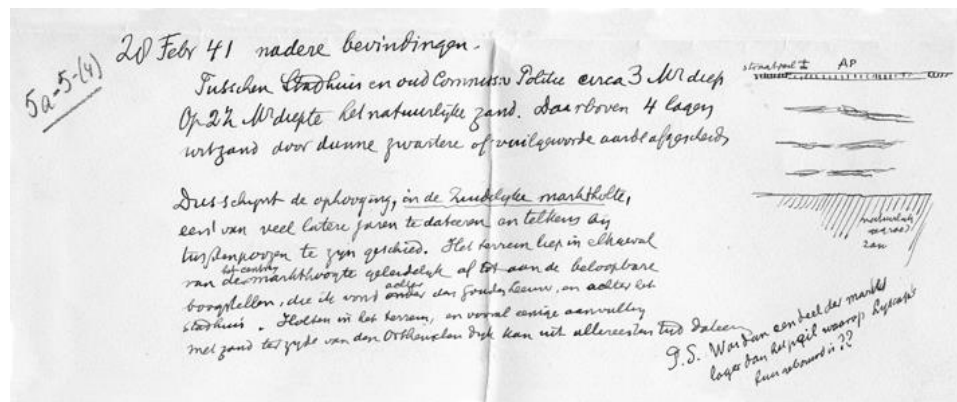 5a-5-(4)
20 Febr 41 nadere bevindingen.
Tusschen Stadhuis en oud Commiss. Politie circa 3 Mr diep
Op 2½ Mr diepte het natuurlijke zand. Daarboven 4 lagen
witzand door dunne zwartere of vuilgeworde aarde afgescheide
Dus schijnt de ophooging, in de Zuidelijke marktholte,
eerst van veel latere jaren te dateeren en telkens bij
tusschenpoozen te zijn geschied. Het terrein liep in elk geval
van het centrum de markthoogte geleidelijk af tot aan de beloopbare
, die ik vond achter den Gouden Leeuw, en achter het
stadhuis. Holten in het terrein, en vooral eenige aanvulling
met zand ter zijde van den dijk kan uit allereersten tijd dateeren
P.S. Was dan een deel der markt
lager dan het peil waarop
gebouwd is??
straatpeil ± AP
natuurlijk
zan